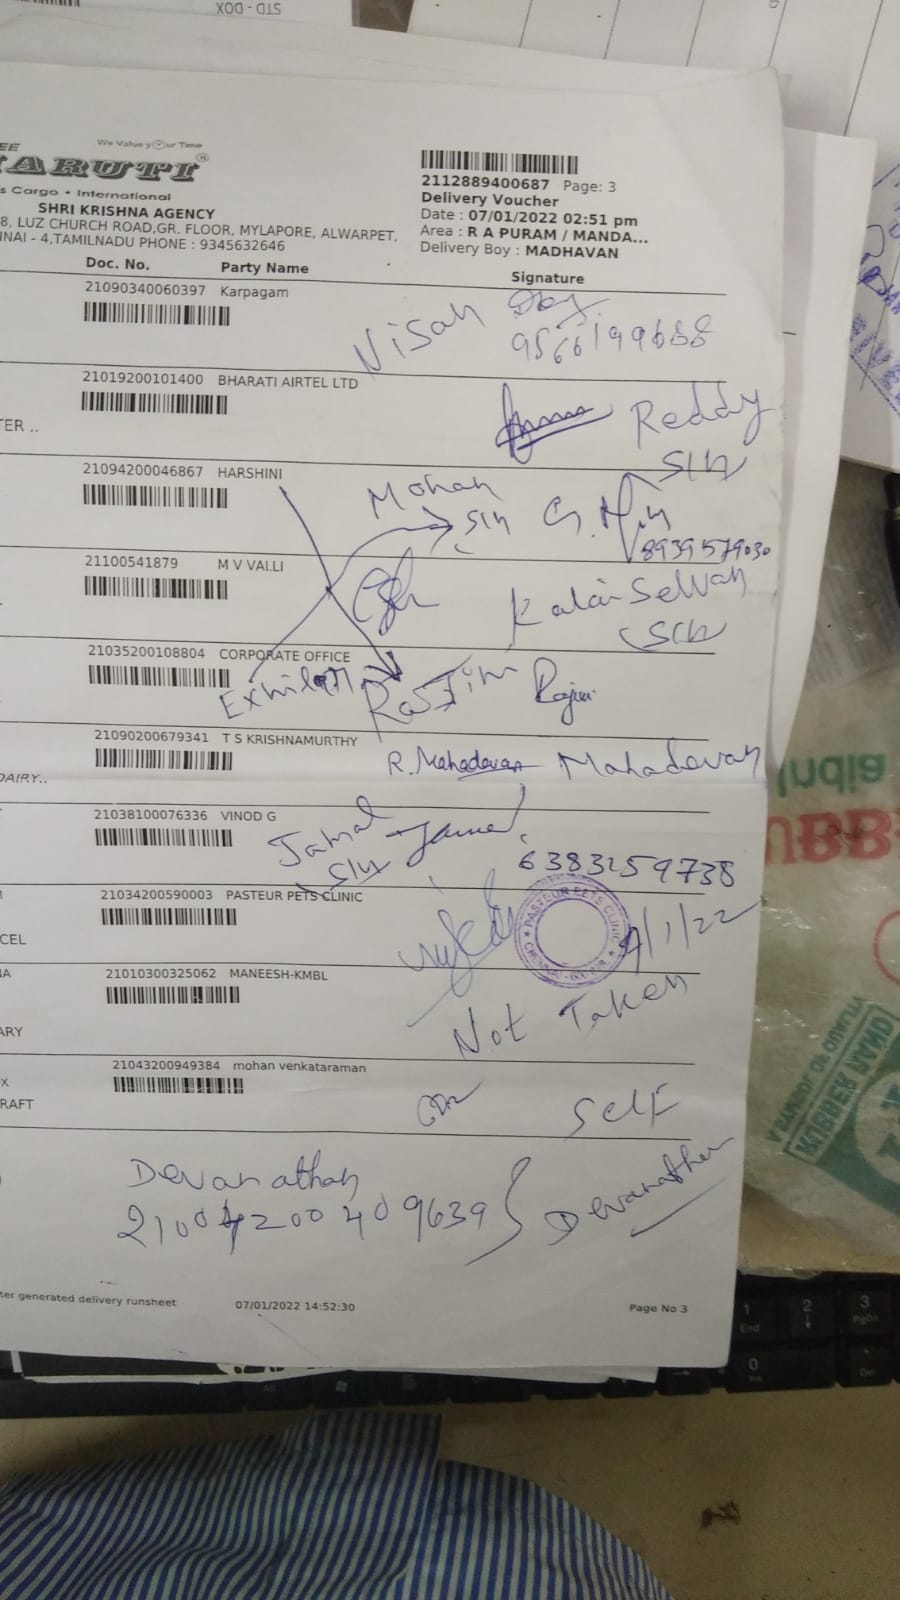 STD - DOX
We Value your Time
ARUTI
s Cargo • International
SHRI KRISHNA AGENCY
8, LUZ CHURCH ROAD,GR. FLOOR, MYLAPORE, ALWARPET,
NAI - 4,TAMILNADU PHONE : 9345632646
2112889400687 Page: 3
Delivery Voucher
Date : 07/01/2022 02:51 pm
Area : R A PURAM / MANDA...
Delivery Boy : MADHAVAN
Doc. No. Party Name Signature
21090340060397 Karpagam
Nisah
9566199688
21019200101400 BHARATI AIRTEL LTD
TER ..
Reddy
S/W
21094200046867 HARSHINI
Mohan
8939579030
21100541879 M V VALLI
KalaiSelvan
21035200108804 CORPORATE OFFICE
21090200679341 T S KRISHNAMURTHY
DAIRY..
R. Mahadevan Mahadevan
21038100076336 VINOD G
Jamal
6383259738
21034200590003 PASTEUR PETS CLINIC
CEL
PASTEUR PETS CLINIC
/1/22
21010300325062 MANEESH-KMBL
ARY
Not Taken
21043200949384 mohan venkataraman
RAFT
Self
Devanathan
21004200409639
Devanathan
ter generated delivery runsheet 07/01/2022 14:52:30 Page No 3
India
UBB
RUBBER BAND
1 End
2
3 PgDn
0 Ins
Del